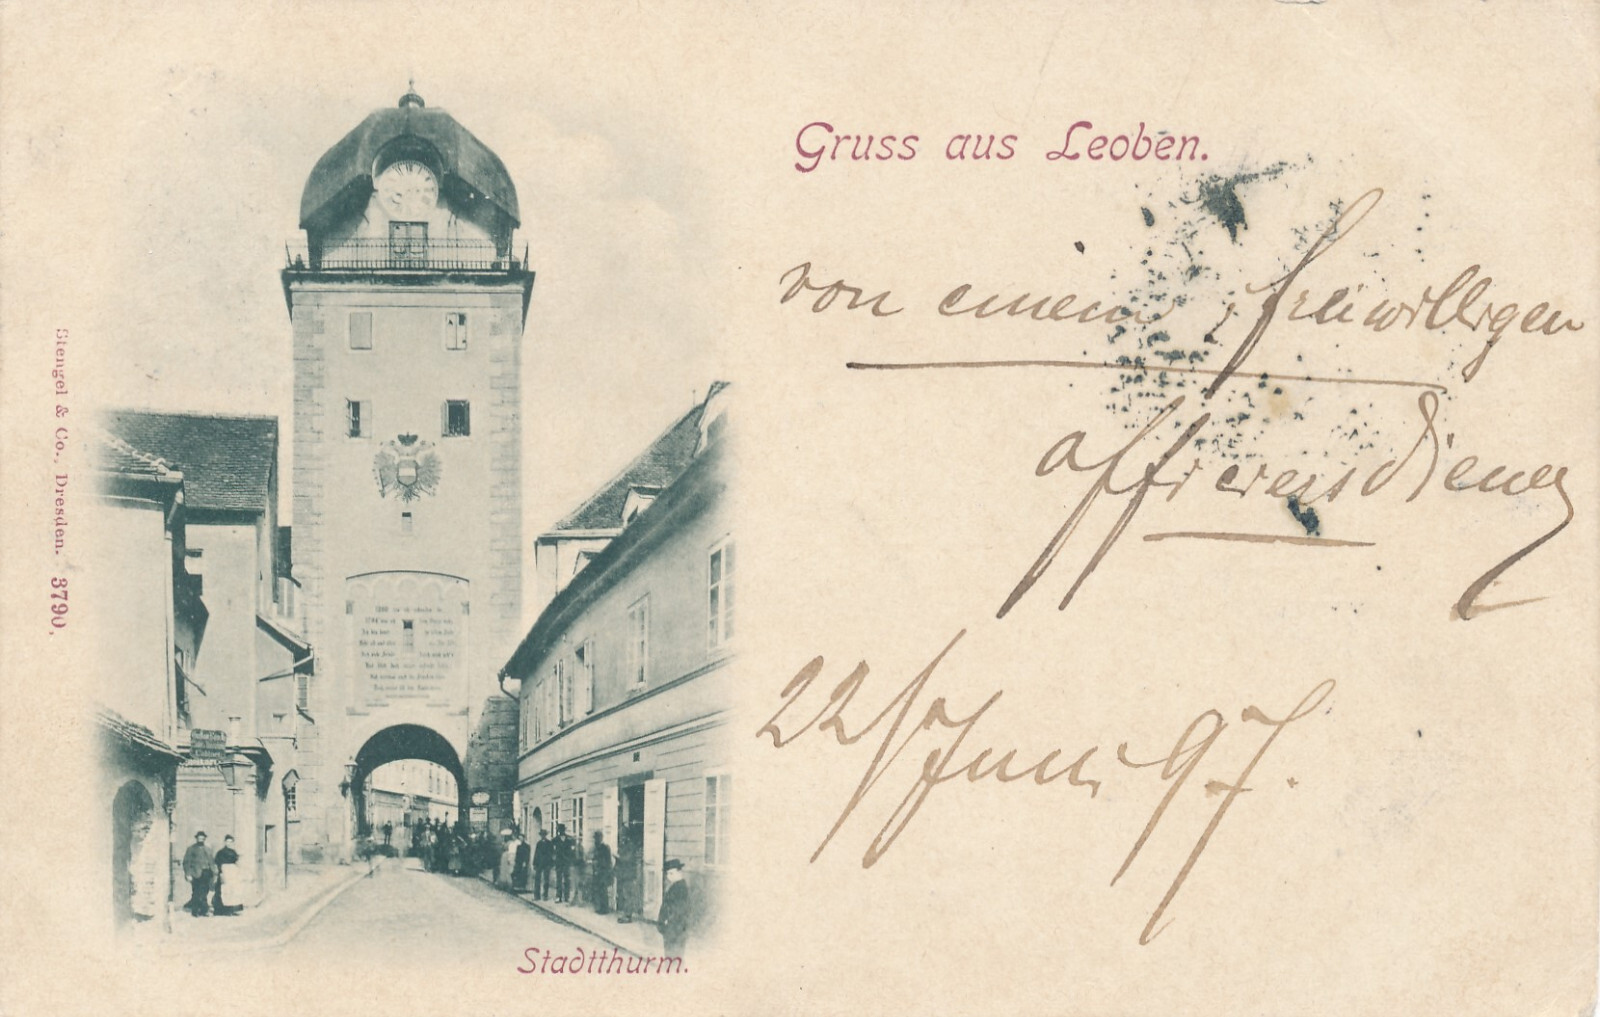 Gruss aus Leoben.
von einem freiwilligen
officiersdiener
22/Juni 97.
Stadtthurm.
Stengel & Co., Dresden. 3790.